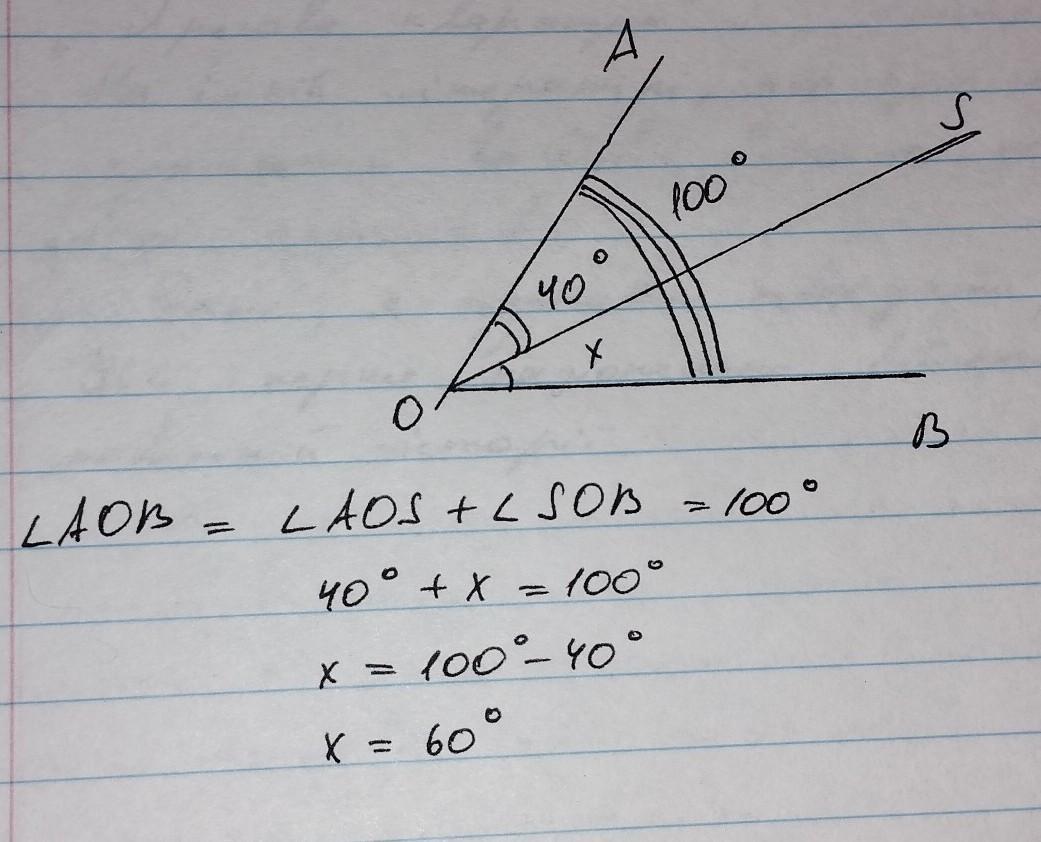 A
S
100°
40°
x
O
B
∠AOB = ∠AOS + ∠SOB = 100°
40° + x = 100°
x = 100° - 40°
x = 60°